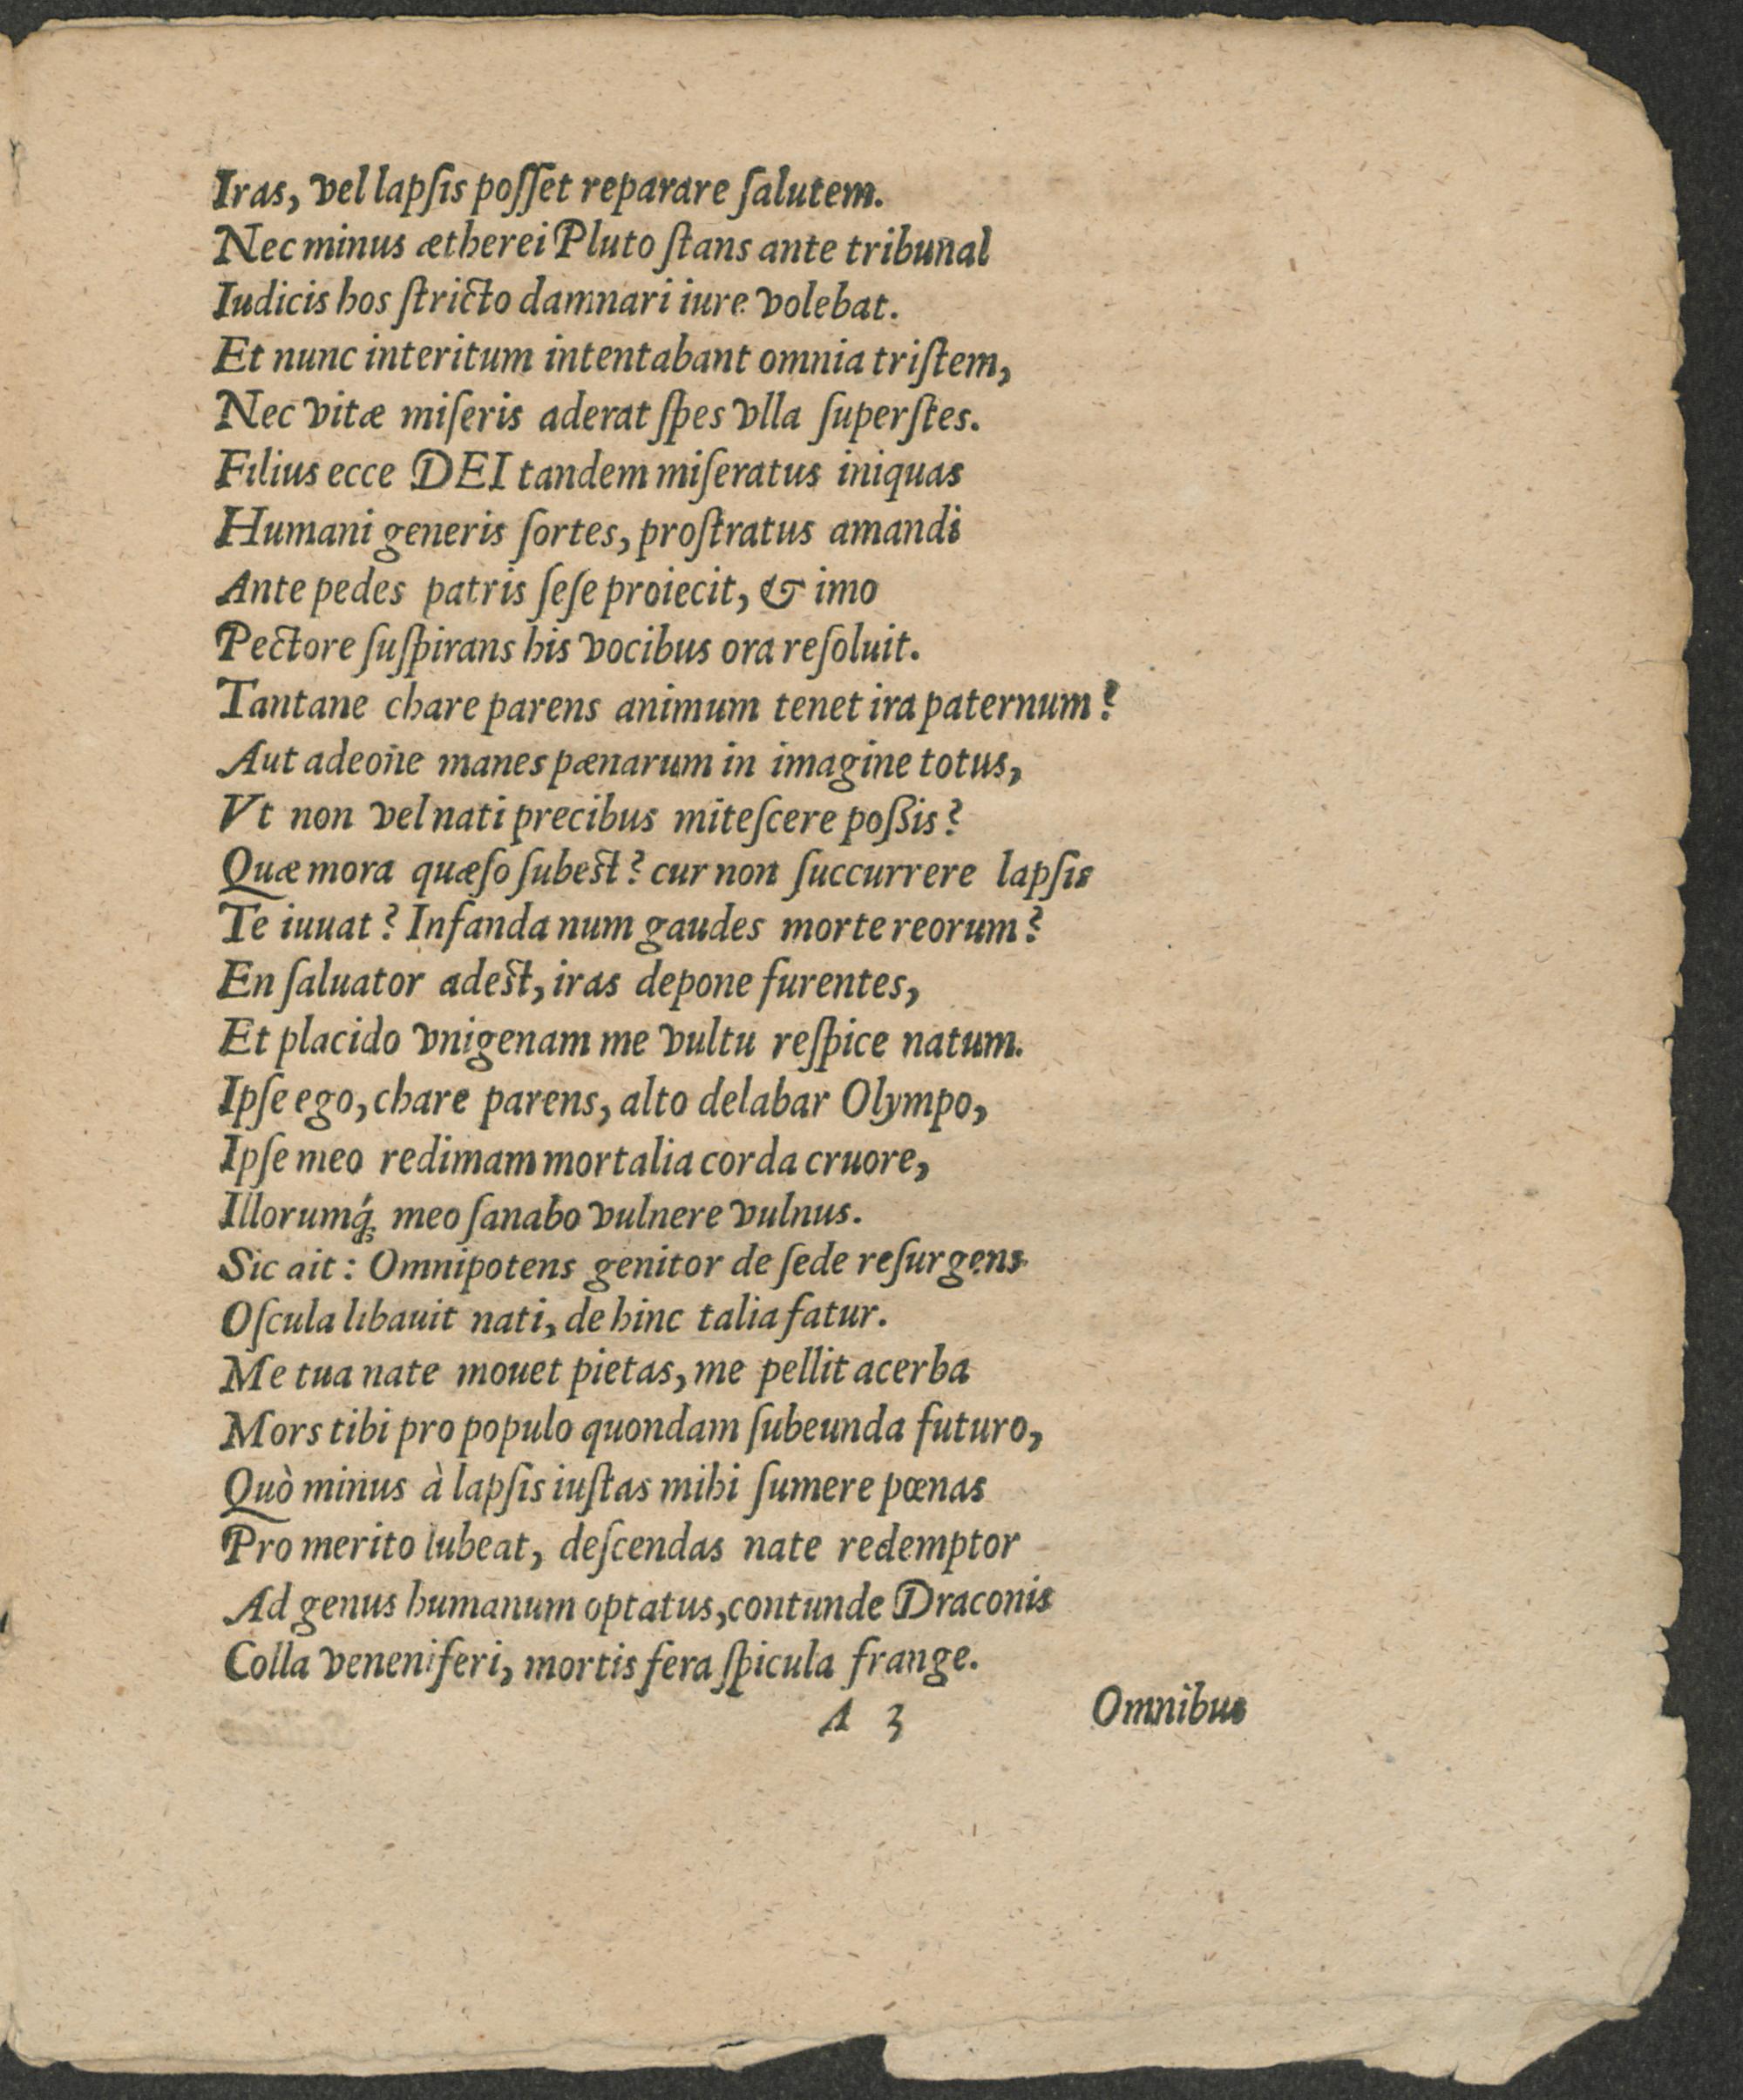 Iras, vel lapſis poſſet reparare ſalutem.
Nec minus ætherei Pluto ſtans ante tribunal
Iudicis hos ſtricto damnari iure volebat.
Et nunc interitum intentabant omnia triſtem,
Nec vitæ miſeris aderat ſpes vlla ſuperſtes.
Filius ecce DEI tandem miſeratus iniquas
Humani generis ſortes, proſtratus amandi
Ante pedes patris ſeſe proiecit, & imo
Pectore ſuſpirans his vocibus ora reſoluit.
Tantane chare parens animum tenet ira paternum?
Aut adeone manes pænarum in imagine totus,
Vt non vel nati precibus miteſcere poßis?
Quæ mora quæſo ſubest? cur non ſuccurrere lapſis
Te iuuat? Infanda num gaudes morte reorum?
En ſaluator adest, iras depone furentes,
Et placido vnigenam me vultu reſpice natum.
Ipſe ego, chare parens, alto delabar Olympo,
Ipſe meo redimam mortalia corda cruore,
Illorumq́; meo ſanabo vulnere vulnus.
Sic ait: Omnipotens genitor de ſede reſurgens
Oſcula libauit nati, de hinc talia fatur.
Me tua nate mouet pietas, me pellit acerba
Mors tibi pro populo quondam ſubeunda futuro,
Quò minus à lapſis iuſtas mihi ſumere pœnas
Pro merito lubeat, deſcendas nate redemptor
Ad genus humanum optatus, contunde Draconis
Colla veneniferi, mortis fera ſpicula frange.
A 3 Omnibus